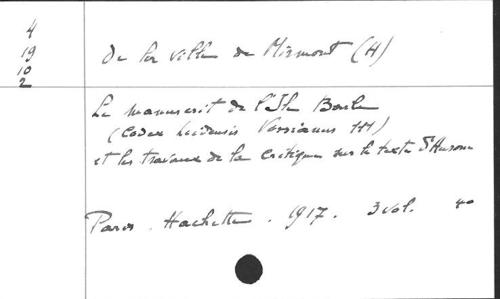 4
19
10
2
de la Ville de Mirmont (H)
Le manuscrit de l'Ile Barbe
(Codex Leidensis Vossianus 111)
et les travaux de la critique sur le texte d'Ausone
Paris. Hachette. 1917. 3 vol. 40